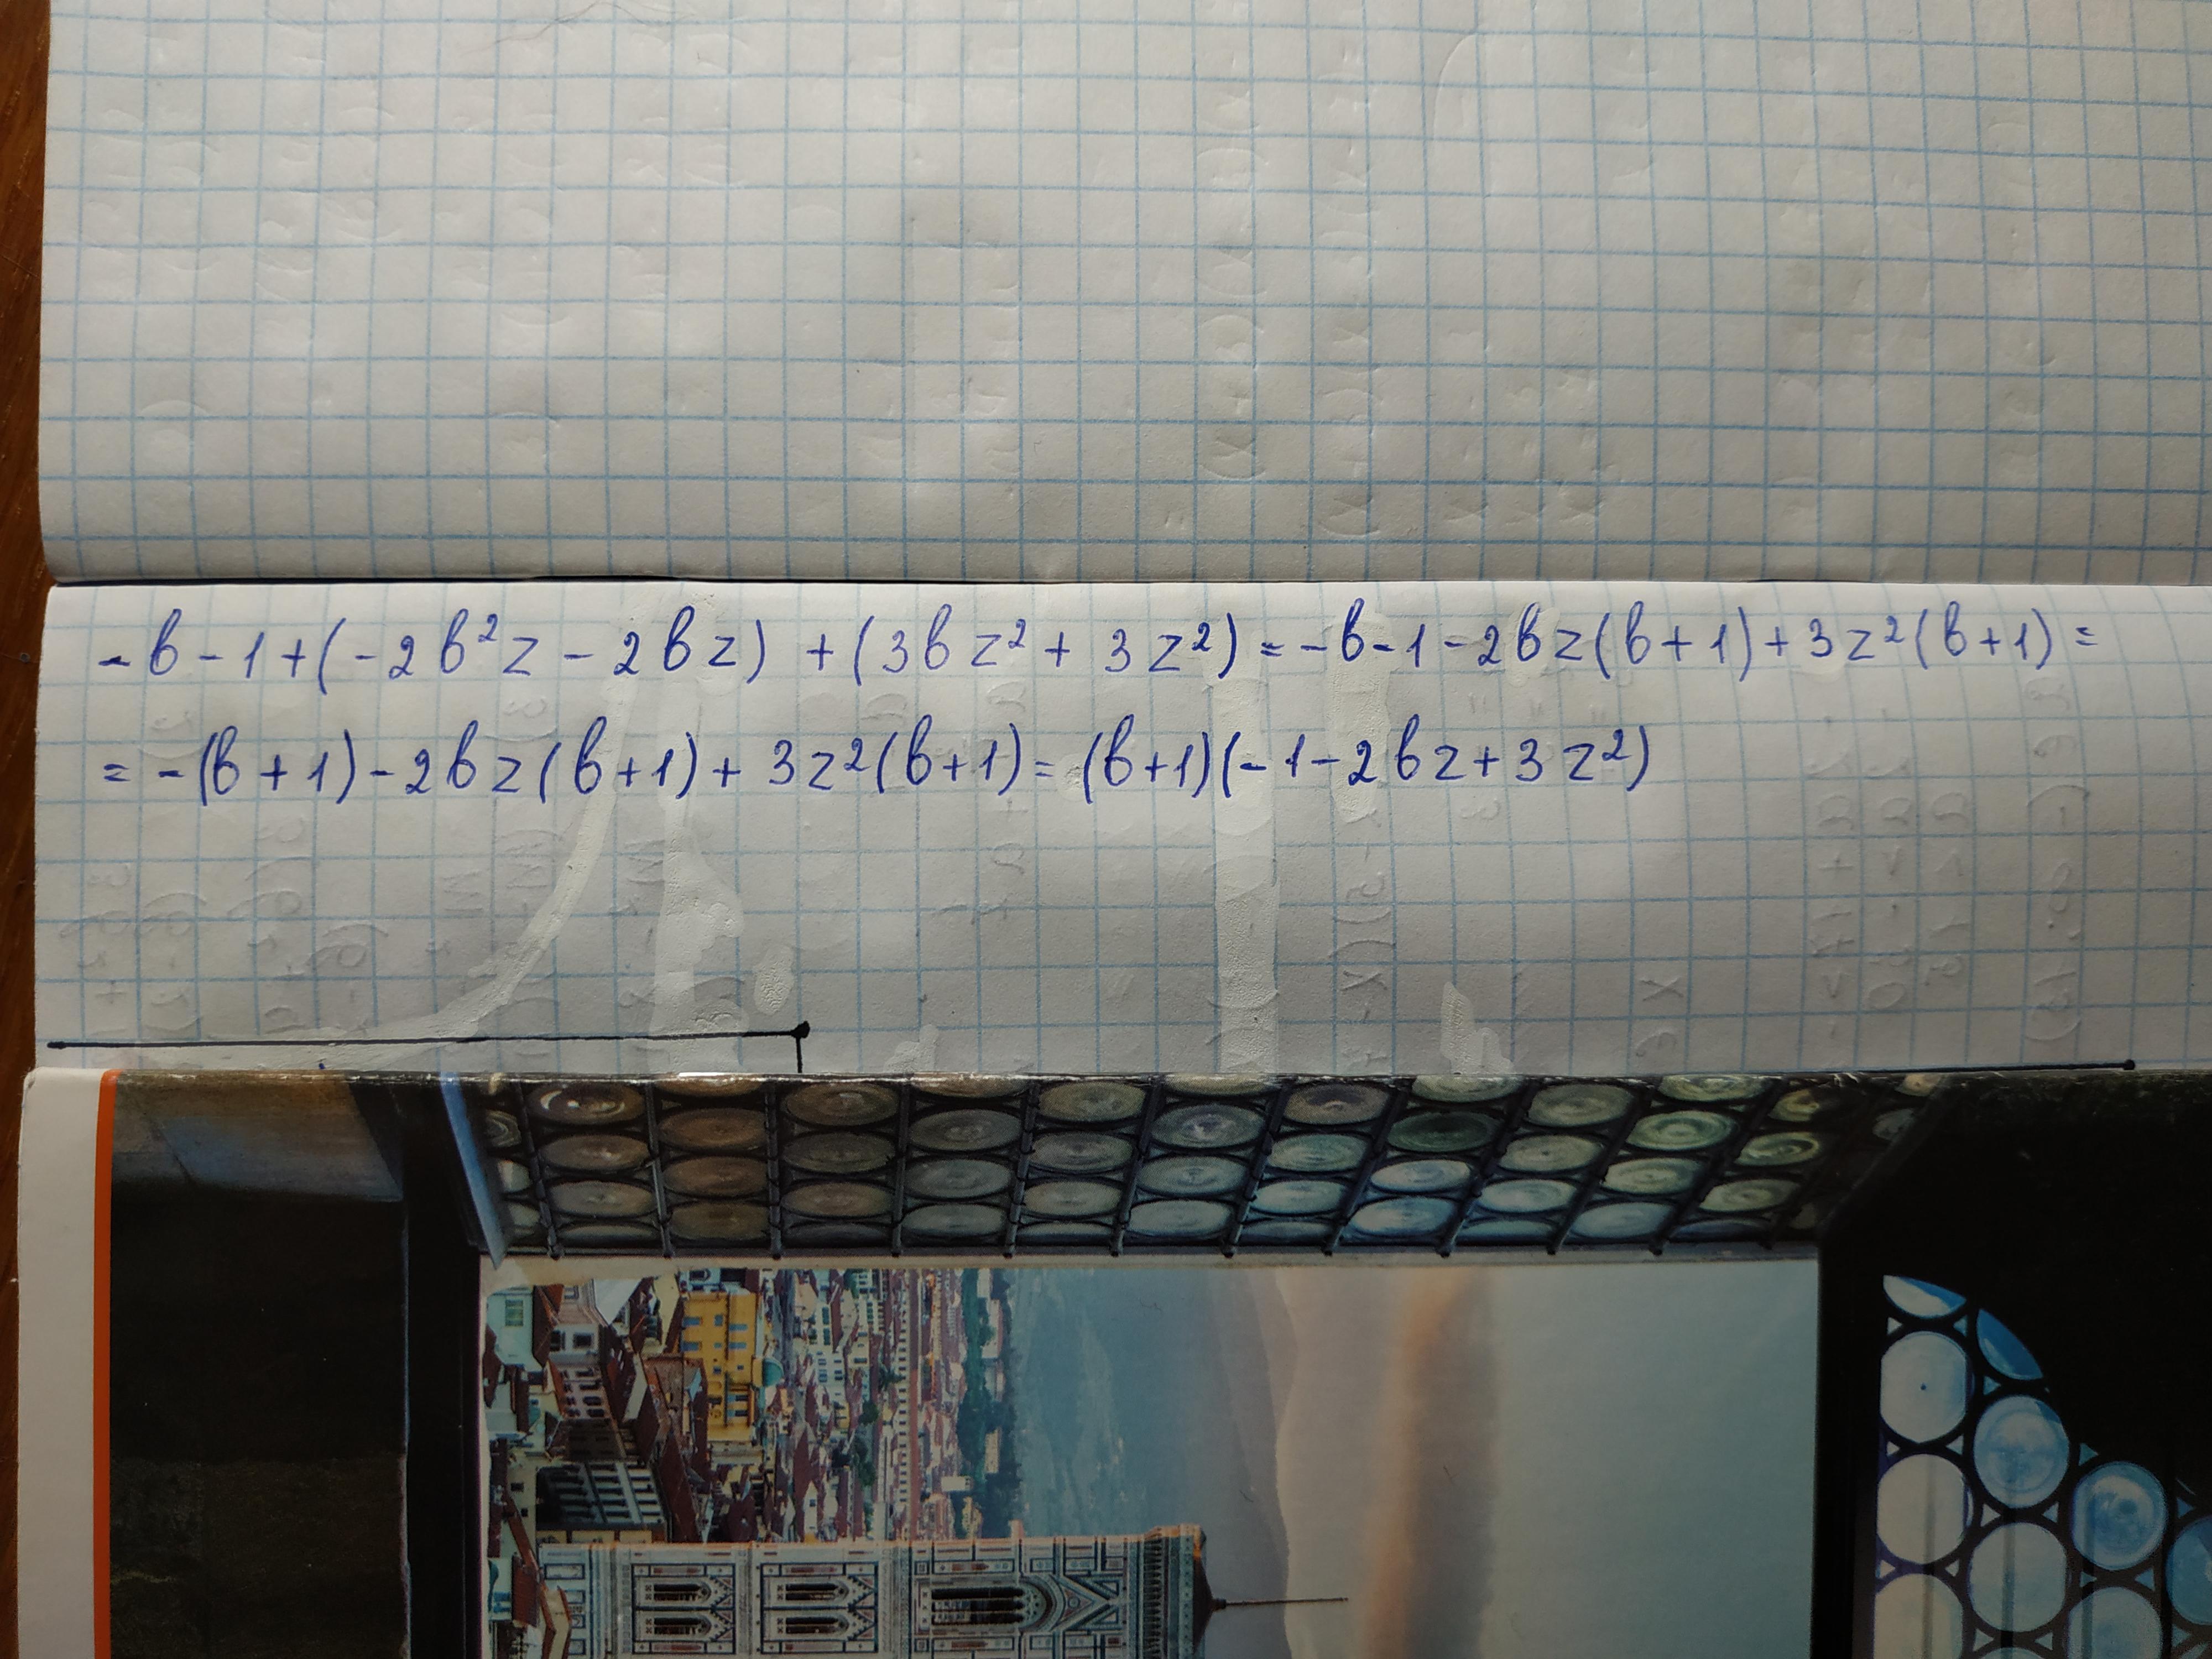 -b-1+(-2b²z-2bz)+(3bz²+3z²)=-b-1-2bz(b+1)+3z²(b+1)=
=-(b+1)-2bz(b+1)+3z²(b+1)=(b+1)(-1-2bz+3z²)